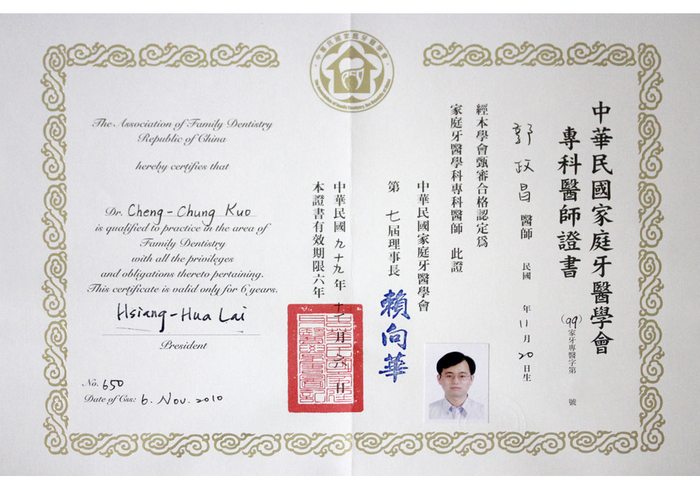 The Association of Family Dentistry
Republic of China
hereby certifies that
Dr. Cheng-Chung Kuo
is qualified to practice in the area of
Family Dentistry
with all the privileges
and obligations thereto pertaining.
This certificate is valid only for 6 years.
Hsiang-Hua Lai
President
No. 650
Date of Css: 6. Nov. 2010
中華民國家庭牙醫學會
專科醫師證書
(99)家牙專醫字第 號
郭政昌 醫師 民國 年11月20日生
經本學會甄審合格認定為
家庭牙醫學科專科醫師 此證
中華民國家庭牙醫學會
第七屆理事長 賴向華
中華民國九十九年十一月六日
本證書有效期限六年